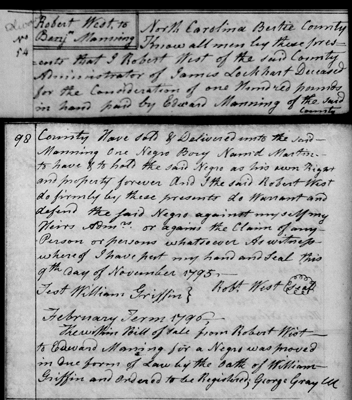 Robert West, to
Benj.n Manning
No
54
North Carolina Bertie County
Know all men by these pres-
ents that I Robert West of the said County
Administrator of James Lockhart Deceased
for the Consideration of one Hundred pounds
in hand paid by Edward Manning of the Said
County
98
County Have sold & Delivered unto the said
Manning One Negro Boy Nam'd Martin
to have & to hold the said Negro as his own Right
and property forever And I the said Robert West
do firmly by these presents do Warrant and
defend the said Negro against my self my
Heirs Adm.rs or against the Claim of any
Person or persons whatsoever As witness
whereof I have put my hand and Seal this
9th day of November 1795
Test William Griffin } Rob.t West
February Term 1796
The within Bill of Sale from Robert West
to Edward Manning for a Negro was proved
in due form of Law by the Oath of William
Griffin and ordered to be Registered, George Gray